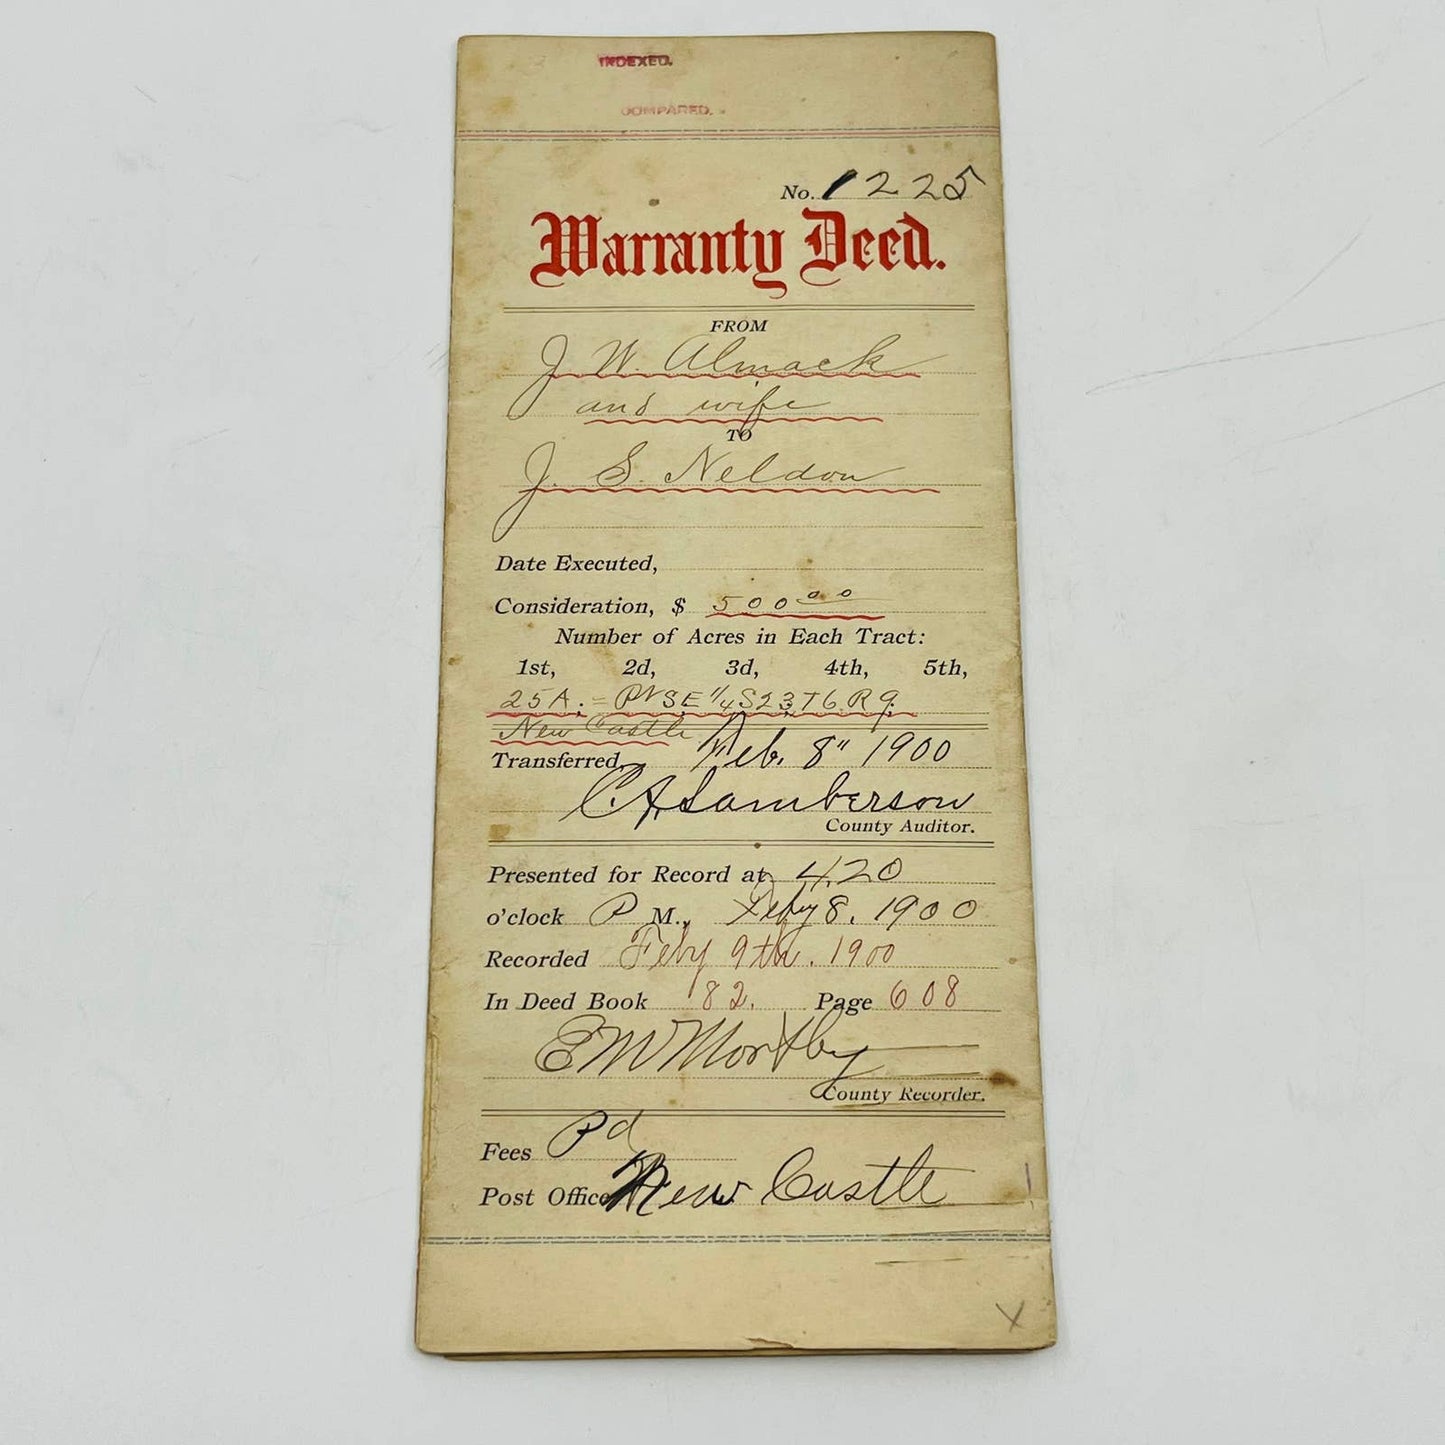 INDEXED.
COMPARED.
No. 1225
Warranty Deed.
FROM
J. W. Almack
and wife
TO
J. S. Neldon
Date Executed,
Consideration, $ 500.00
Number of Acres in Each Tract:
1st, 2d, 3d, 4th, 5th,
25A. = Pt SE 1/4 S23, T6. R9.
New Castle
Transferred Feb. 8" 1900
C. A. Lamberson
County Auditor.
Presented for Record at 4.20
o'clock P M., Feby 8. 1900
Recorded Feby 9th. 1900
In Deed Book 82. Page 608
E W
County Recorder.
Fees Pd
Post Office New Castle
X